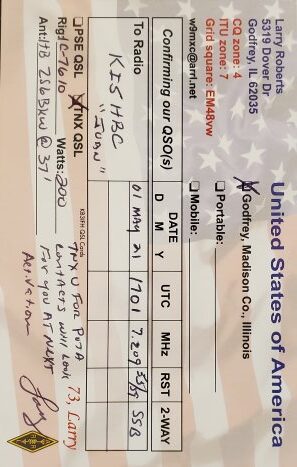 United States of America
Larry Roberts
5319 Dover Dr
Godfrey, IL 62035
CQ zone: 4
ITU zone: 7
Grid square: EM48vw
w9mxc@arrl.net
X Godfrey, Madison Co., Illinois
☐ Portable:
☐ Mobile:
Confirming our QSO(s)
DATE
D M Y
UTC
MHz
RST
2-WAY
To Radio
KI5HBC
"JUAN"
01 MAY 21
1701
7.209
55/59
SSB
☐ PSE QSL
X TNX QSL
KB3IFH QSL Cards
73, Larry
Rig: IC-7610
Watts: 200
Ant: HB
@ 37'
TNX U FOR POTA
CONTACTS WILL LOOK
FOR YOU AT NEXT
ACTIVATION
Larry